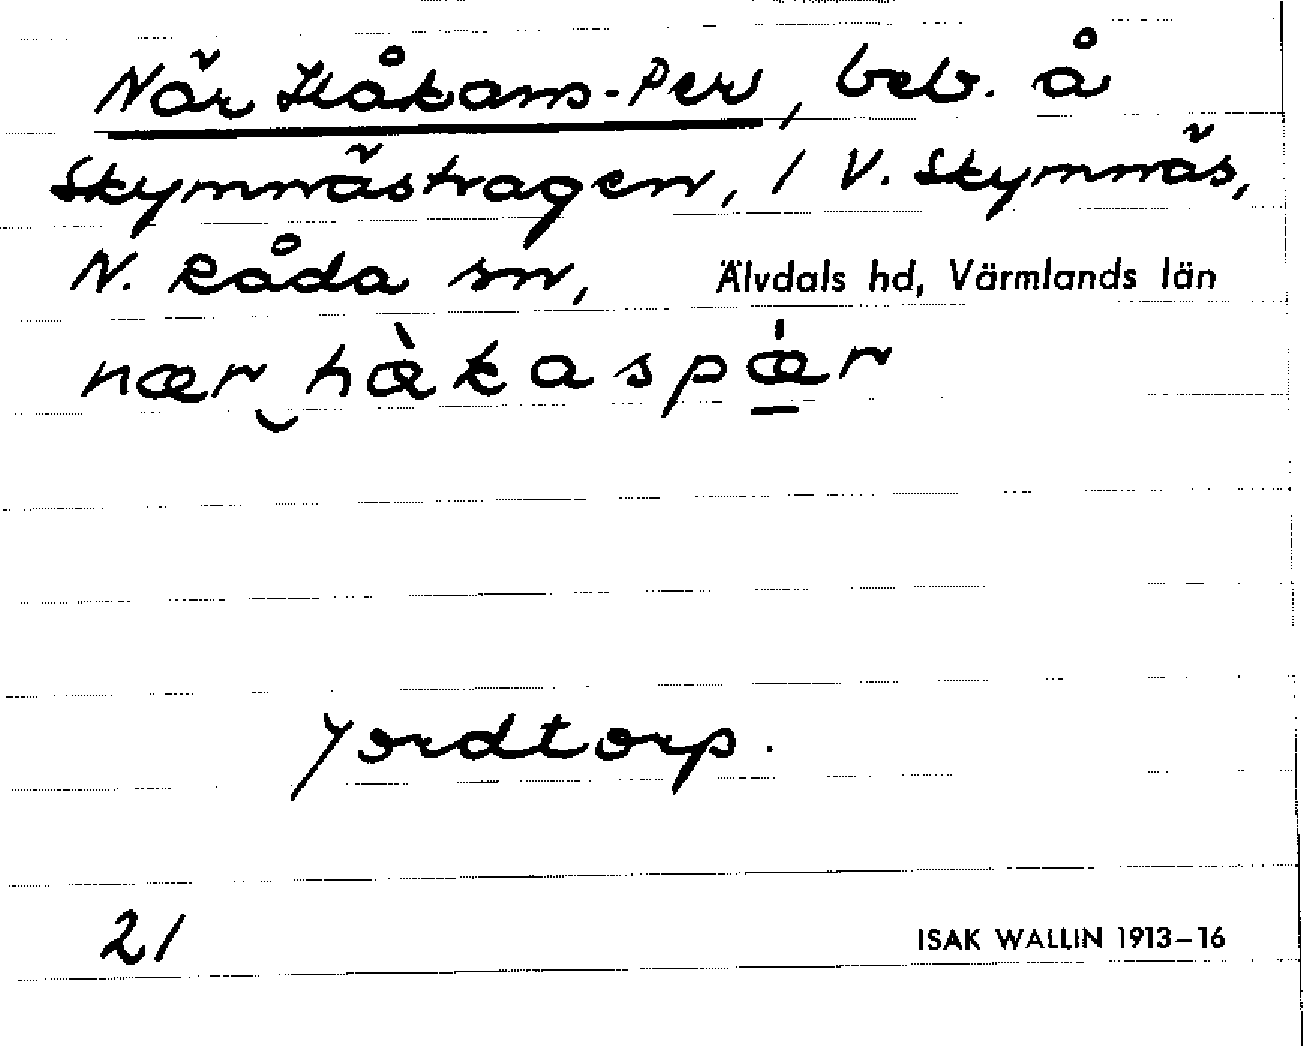 När Håkans-Per, beb. å
Skymnästragen, 1 V. Skymnäs,
N. Råda sn, Älvdals hd, Värmlands län
nær‿hæ̀kaspǽ̠r
Jordtorp.
21 ISAK WALLIN 1913–16